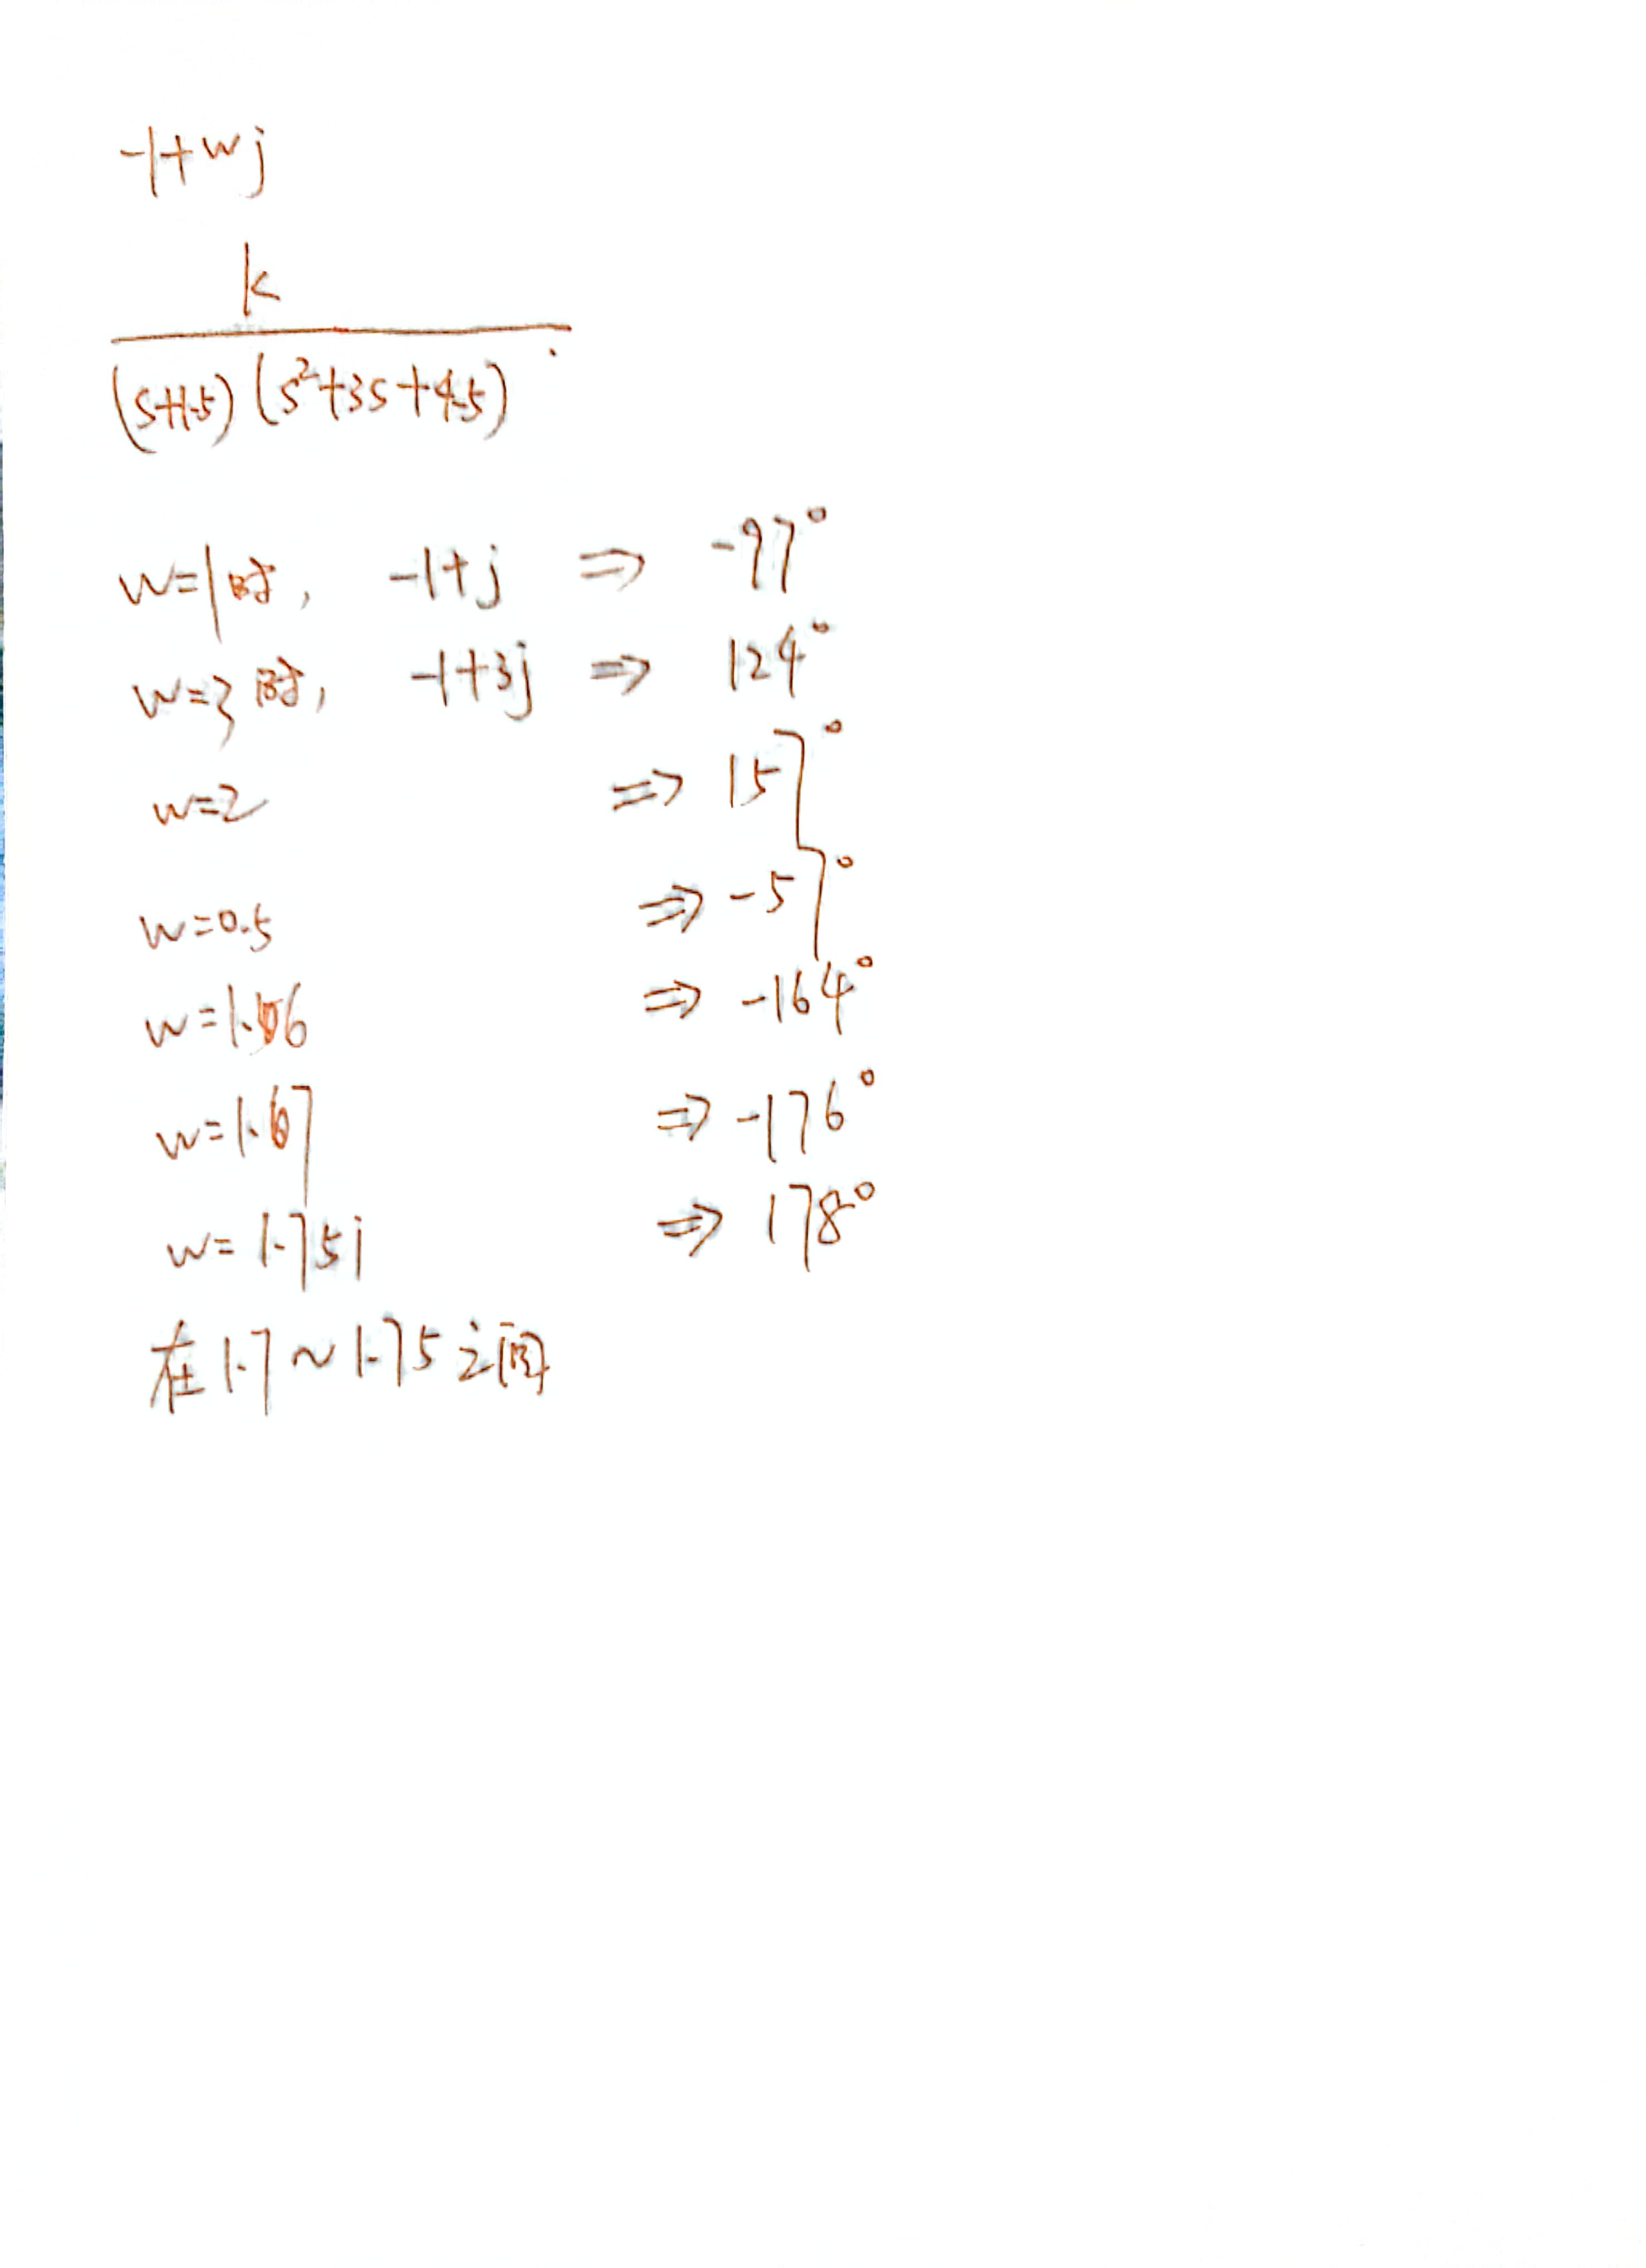 -1+wj
k
(s+1.5)(s²+3s+4.5)
w=1时, -1+j ⇒ -97°
w=3时, -1+3j ⇒ 124°
w=2 ⇒ 157°
w=0.5 ⇒ -57°
⇒ -164°
w=1.67 ⇒ -176°
w=1.75j ⇒ 178°
在1.7~1.75之间